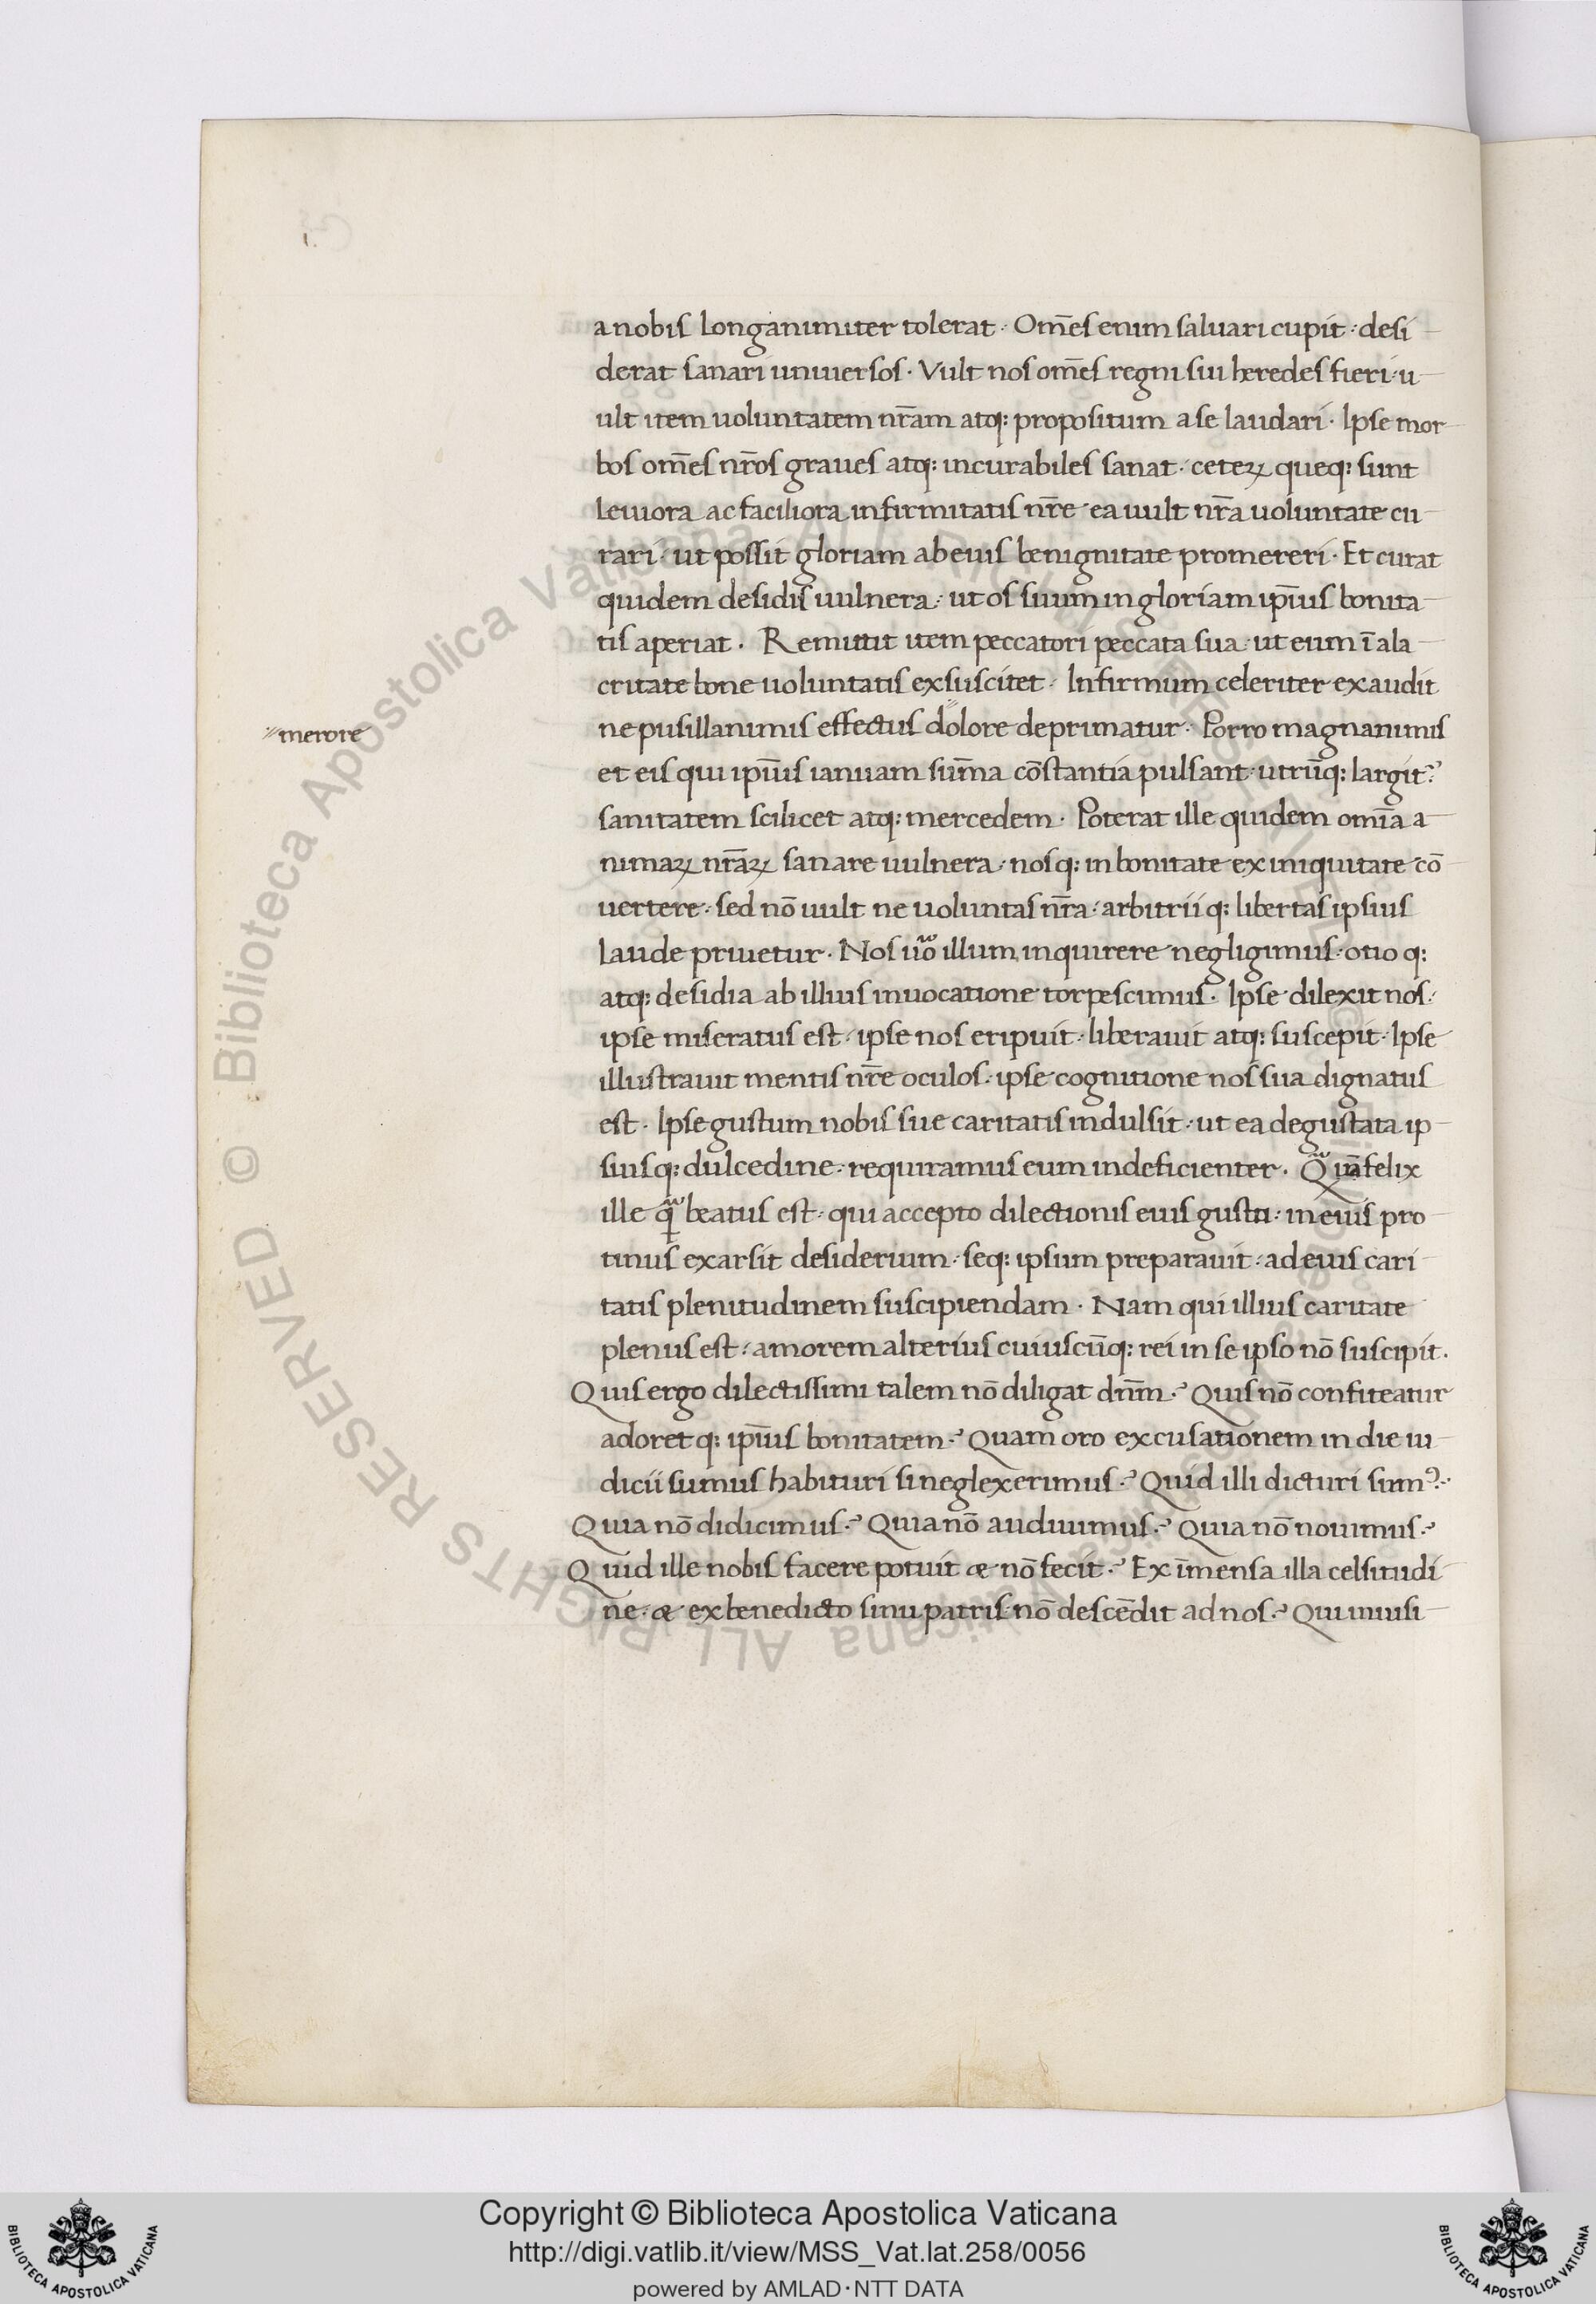 a nobis longanimiter tolerat · Om̄es enim saluari cupit · desi
derat sanari uniuersos · Vult nos om̄es regni sui heredes fieri · u
ult item uoluntatem nr̄am atq: propositum a se laudari · Ipse mor
bos om̄es nr̄os graues atq: incurabiles sanat · ceteꝝ queq: sunt
leuiora ac faciliora infirmitatis nr̄e · ea uult nr̄a uoluntate cu
rari · ut possit gloriam ab eius benignitate promereri · Et curat
quidem desidis uulnera · ut os suum in gloriam ip̄ius bonita
tis aperiat · Remittit item peccatori peccata sua · ut eum ī ala
critate bone uoluntatis exsuscitet · Infirmum celeriter exaudit
ne pusillanimis effectus dolore deprimatur · Porro magnanimis
merore
et eis qui ip̄ius ianuam sum̄a cōstantia pulsant · utrūq: largit͛
sanitatem scilicet atq: mercedem · Poterat ille quidem omīa a
nimaꝝ nr̄aꝝ sanare uulnera · nosq: in bonitate ex iniquitate cō
uertere · sed nō uult ne uoluntas nr̄a · arbitrii q: libertas ipsius
laude priuetur · Nos uō illum inquirere negligimus · otio q:
atq: desidia ab illius inuocatione torpescimus · Ipse dilexit nos ·
ipse miseratus est · ipse nos eripuit · liberauit atq: suscepit · Ipse
illustrauit mentis nr̄e oculos · ipse cognitione nos sua dignatus
est · Ipse gustum nobis sue caritatis indulsit · ut ea degustata ip
siusq: dulcedine · requiramus eum indeficienter · felix
ille beatus est · qui accepto dilectionis eius gustu · in eius pro
tinus exarsit desiderium · seq: ipsum preparauit · ad eius cari
tatis plenitudinem suscipiendam · Nam qui illius caritate
plenus est · amorem alterius cuiuscūq: rei in se ipso nō suscipit ·
Quis ergo dilectissimi talem nō diligat dn̄m ? Quis nō confiteatur
adoret q: ip̄ius bonitatem ? Quam oro excusationem in die iu
dicii sumus habituri si neglexerimus ? Quid illi dicturi sum͛ ·
Quia nō didicimus ? Quia nō audiuimus ? Quia nō nouimus ?
Quid ille nobis facere potuit & nō fecit ? Ex īmensa illa celsitudi
ne · & ex benedicto sinu patris nō descēdit ad nos ? Qui inuisi
Copyright © Biblioteca Apostolica Vaticana
http://digi.vatlib.it/view/MSS_Vat.lat.258/0056
powered by AMLAD·NTT DATA